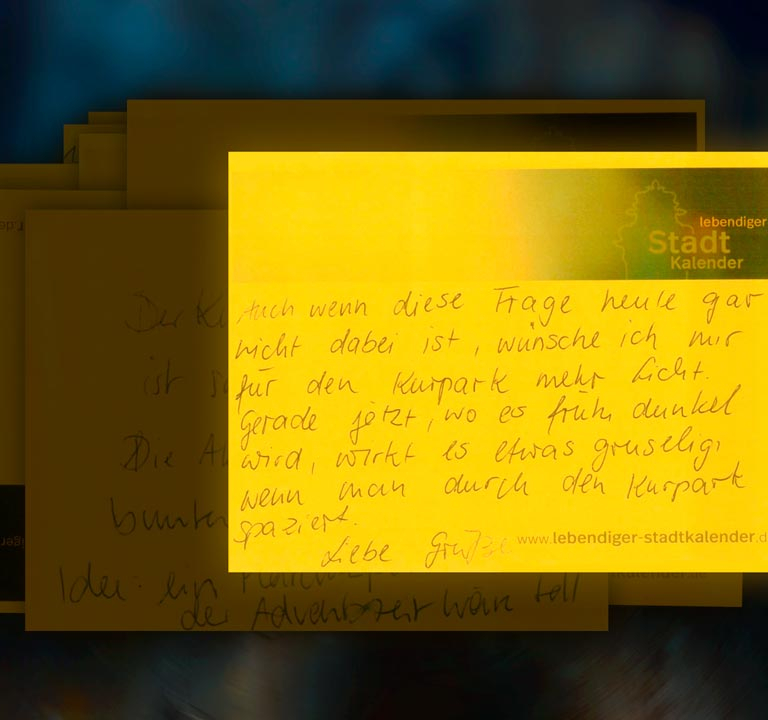 lebendiger
Stadt
Kalender
Auch wenn diese Frage heute gar
nicht dabei ist, wünsche ich mir
für den Kurpark mehr Licht.
Gerade jetzt, wo es früh dunkel
wird, wirkt es etwas gruselig,
wenn man durch den Kurpark
spaziert.
Liebe Grüße
www.lebendiger-stadtkalender.d
Der
ist
Die
Idee: ein
der Adventszeit wäre toll